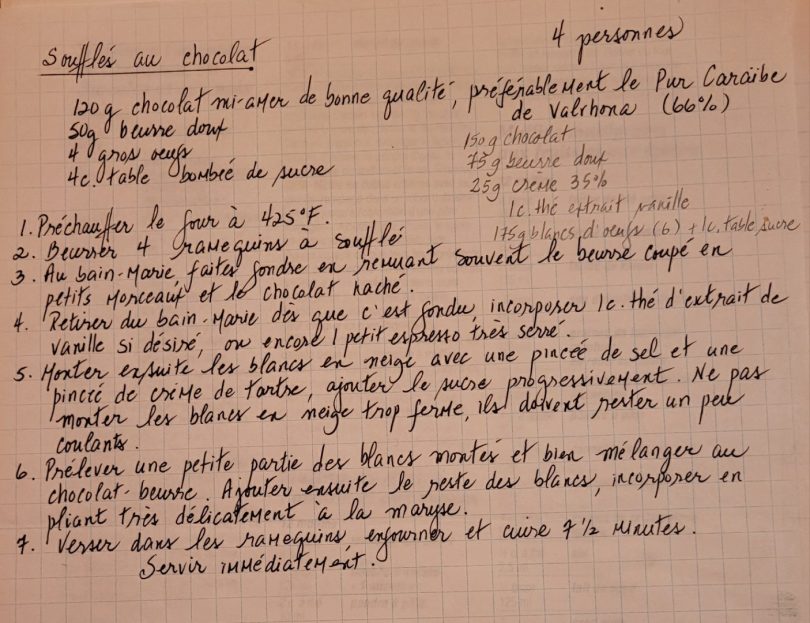 4 personnes
Soufflés au chocolat
120g chocolat mi-amer de bonne qualité, préférablement le Pur Caraïbe
de Valrhona (66%)
50g beurre doux
4 gros oeufs
4c. table bombée de sucre
150g chocolat
75g beurre doux
25g crème 35%
1c. thé extrait vanille
175g blancs d'oeufs (6) + 1c. table sucre
1. Préchauffer le four à 425°F.
2. Beurrer 4 ramequins à soufflé
3. Au bain-marie, faites fondre en remuant souvent le beurre coupé en
petits morceaux et le chocolat haché.
4. Retirer du bain-marie dès que c'est fondu, incorporer 1c. thé d'extrait de
vanille si désiré, ou encore 1 petit espresso très serré.
5. Monter ensuite les blancs en neige avec une pincée de sel et une
pincée de crème de tartre, ajouter le sucre progressivement. Ne pas
monter les blancs en neige trop ferme, ils doivent rester un peu
coulants.
6. Prélever une petite partie des blancs montés et bien mélanger au
chocolat-beurre. Ajouter ensuite le reste des blancs, incorporer en
pliant très délicatement à la maryse.
7. Verser dans les ramequins, enfourner et cuire 7 1/2 minutes.
Servir immédiatement.